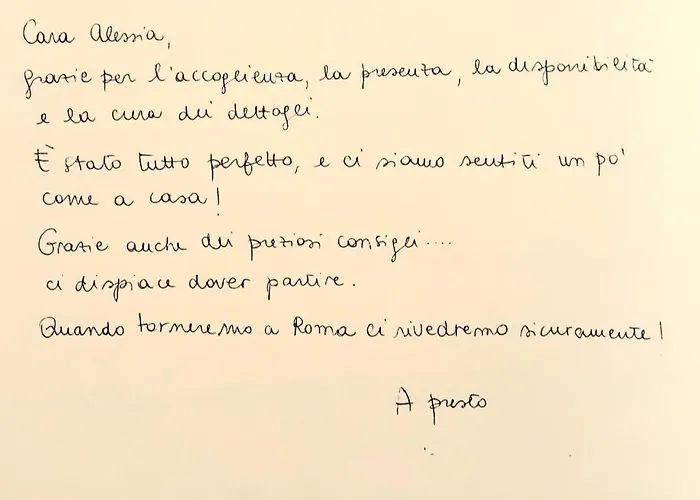 Cara Alessia,
grazie per l'accoglienza, la presenza, la disponibilità
e la cura dei dettagli.
È stato tutto perfetto, e ci siamo sentiti un po'
come a casa!
Grazie anche dei preziosi consigli....
ci dispiace dover partire.
Quando torneremo a Roma ci rivedremo sicuramente!
A presto